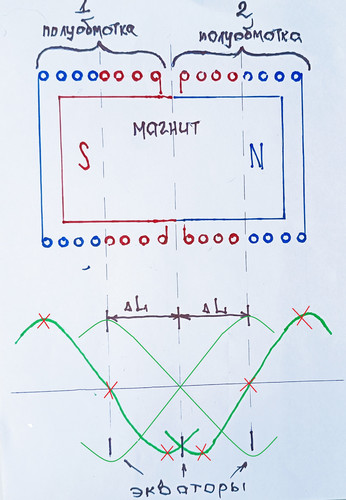 1 2
полуобмотка полуобмотка
магнит
S N
ΔL ΔL
экваторы